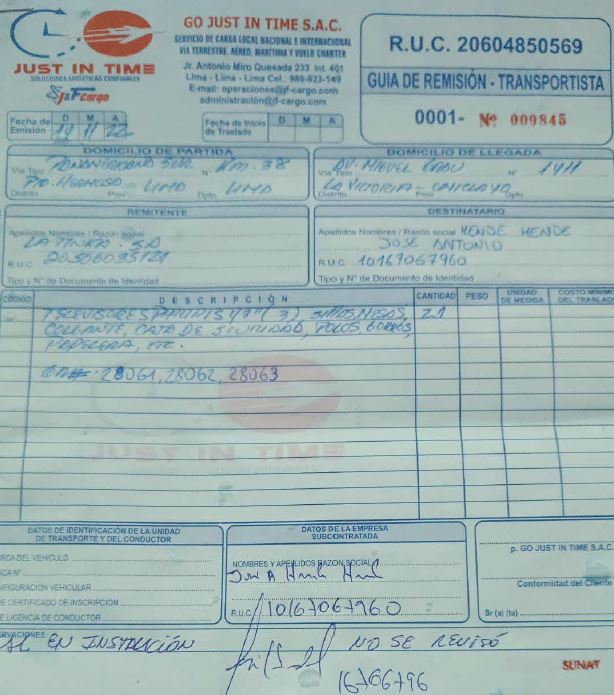 GO JUST IN TIME S.A.C.
SERVICIO DE CARGA LOCAL NACIONAL E INTERNACIONAL
VIA TERRESTRE, AEREO, MARITIMA Y VUELO CHARTER
Jr. Antonio Miro Quesada 233 Int. 401
Lima - Lima - Lima Cel.: 989-623-149
E-mail: operaciones@jf-cargo.com
administración@jf-cargo.com
JUST IN TIME
SOLUCIONES LOGISTICAS CONFIABLES
J&F Cargo
R.U.C. 20604850569
GUIA DE REMISIÓN - TRANSPORTISTA
0001- Nº 000845
Fecha de Emisión D M A
19 11 22
Fecha de Inicio de Traslado D M A
DOMICILIO DE PARTIDA
Vía Tipo PANAMERICANA SUR Nº Km. 38
Pto. HERMOSA - LIMA LIMA
Distrito Prov. Dpto.
DOMICILIO DE LLEGADA
Vía Tipo AV. MIGUEL GRAU Nº 1411
LA VICTORIA - CHICLAYO
Distrito Prov. Dpto.
REMITENTE
Apellidos Nombres / Razón social
LA TINKA. SA
R.U.C. 20506035121
Tipo y N° de Documento de Identidad
DESTINATARIO
Apellidos Nombres / Razón social MENDE MENDE
JOSE ANTONIO
R.U.C. 10167067960
Tipo y N° de Documento de Identidad
CÓDIGO DESCRIPCIÓN CANTIDAD PESO UNIDAD DE MEDIDA COSTO MINIMO DEL TRASLADO
TELEVISORES PHILIPS 43" (3), SILLAS, MESAS, 21
COLGANTE, CAJA DE SEGURIDAD, POLOS, GORROS,
PAPELERA, ETC.
28061, 28062, 28063
JUST IN TIME
DATOS DE IDENTIFICACIÓN DE LA UNIDAD
DE TRANSPORTE Y DEL CONDUCTOR
MARCA DEL VEHÍCULO
PLACA N°
CONFIGURACIÓN VEHICULAR
N° DE CERTIFICADO DE INSCRIPCIÓN
N° DE LICENCIA DE CONDUCTOR
DATOS DE LA EMPRESA
SUBCONTRATADA
NOMBRES Y APELLIDOS RAZON SOCIAL
R.U.C. 10167067960
p. GO JUST IN TIME S.A.C.
Conformidad del Cliente
Sr (a) (ta)
OBSERVACIONES:
EN INSTALACIÓN NO SE REVISÓ
16706796
SUNAT